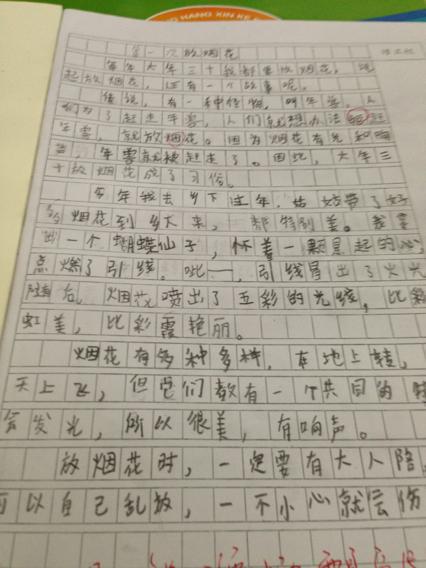 第一次放烟花
每年大年三十我都要放烟花，说
起放烟花，还有一个故事呢。
传说，有一种怪物，叫年兽，人
们为了赶走年兽，人们就想办法赶
年兽，就放烟花。因为烟花有光和响
声，年兽就被赶走了。因此，大年三
十放烟花成了习俗。
今年我去乡下过年，姑姑带了好
多烟花到乡下来，都特别美。我拿
出一个蝴蝶仙子，怀着一颗的心
点燃了引线。呲一，引线冒出了火光
随后，烟花喷出了五彩的光线，比彩
虹美，比彩霞艳丽。
烟花有多种多样，在地上转，
天上飞，但它们教有一个共同的特
会发光，所以很美，有响声。
放烟花时，一定要有大人陪
可以自己乱放，一不小心就会伤